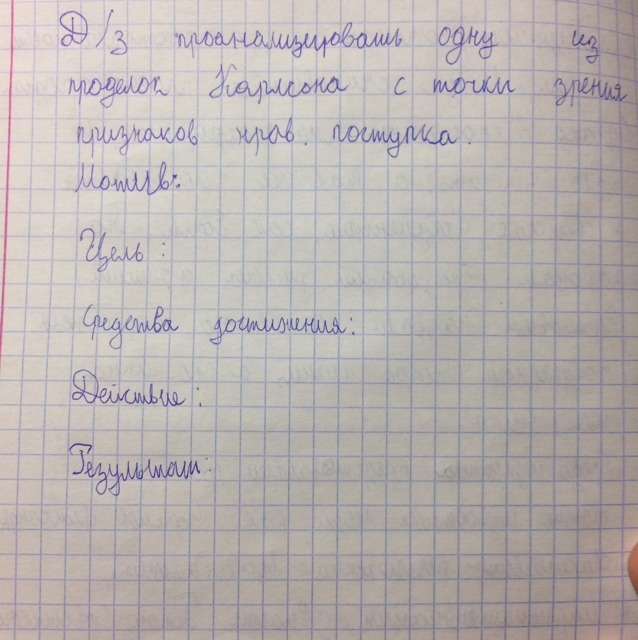 Д/з проанализировать одну из
проделок Карлсона с точки зрения
признаков нрав. поступка.
Мотив:
Цель:
Средства достижения:
Действие:
Результат: